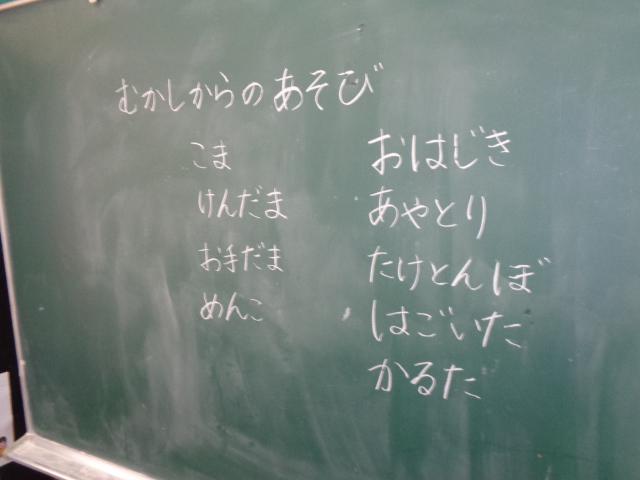 むかしからのあそび
こま
けんだま
お手だま
めんこ
おはじき
あやとり
たけとんぼ
はごいた
かるた